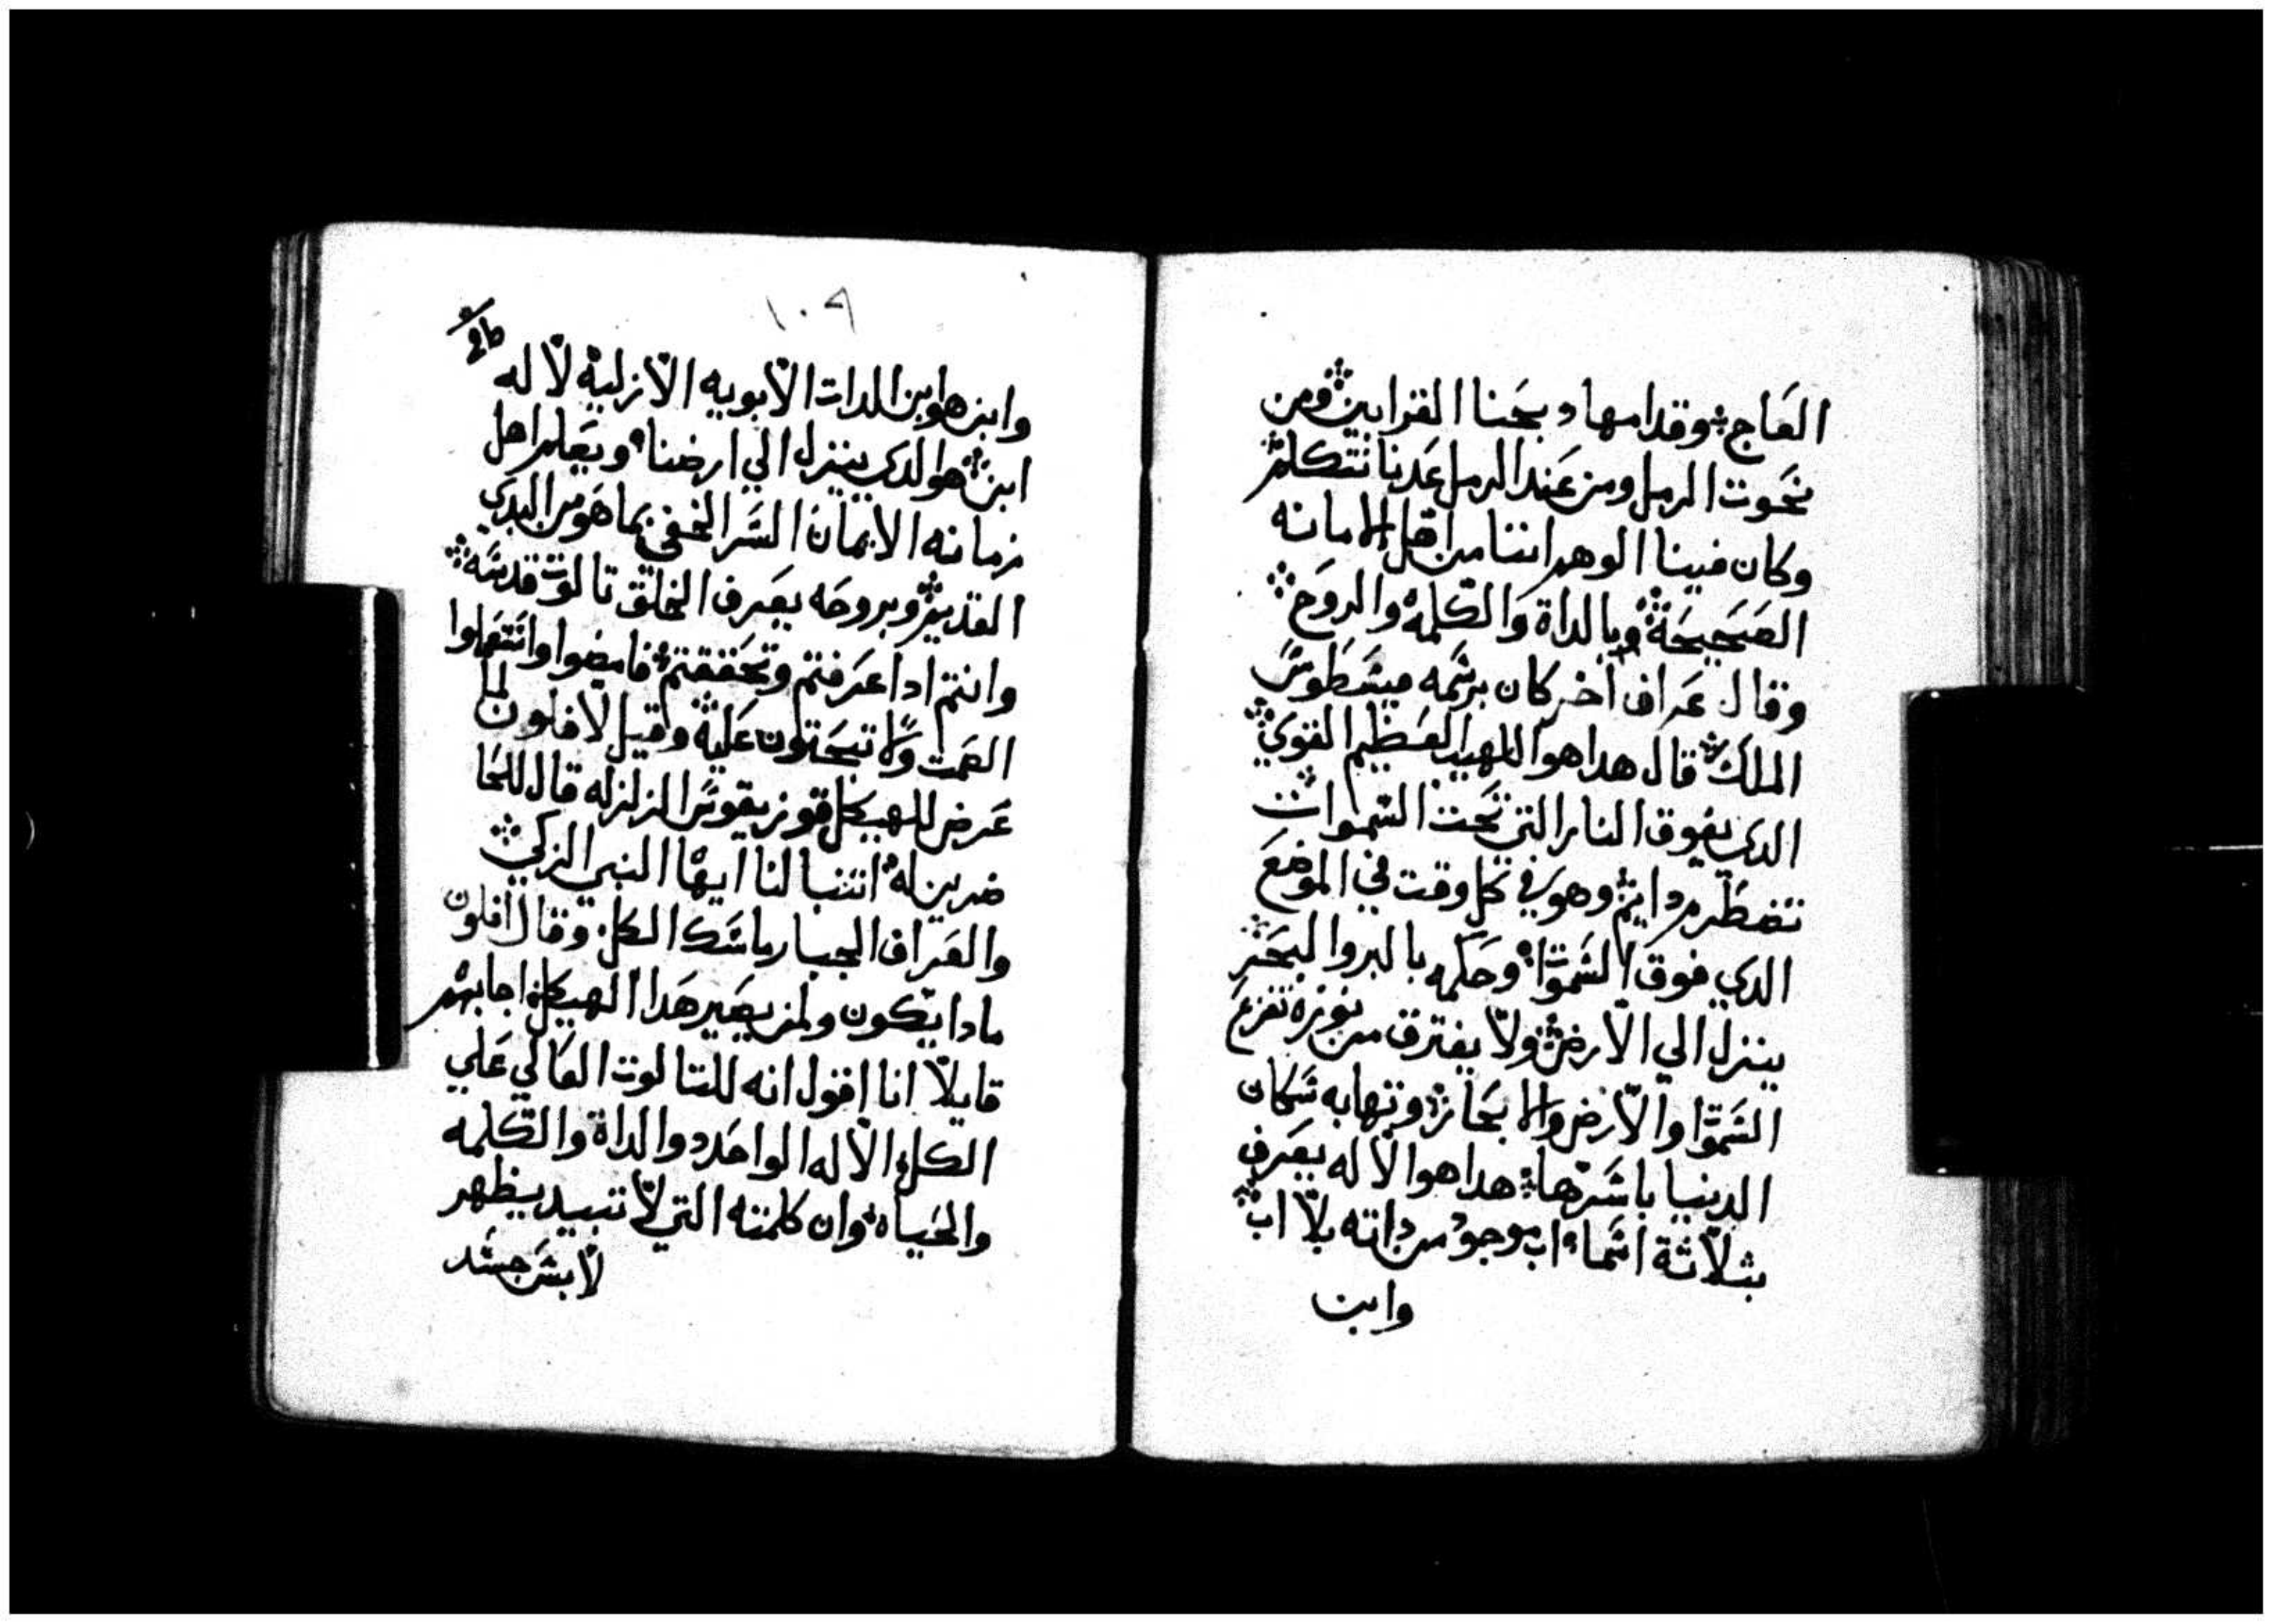 العاج وقدامها دبحنا القرابين ومن
نحوت الرمل ومن عند الرمل عدنا نتكلم
وكان فينا الوهم اننا من اهل الامانه
الصحيحة وبالداة والكلمة والروح
وقال عراف اخر كان برسمه ميسطوس
الملك قال هدا هو المهيب العظيم القوي
الدي يفوق النار التي تحت السموات
تضطرم دايم وهو في كل وقت في الموضع
الدي فوق السموات وحكمه بالبر والبحر
ينزل الي الارض ولا يفترق من نوره تفزع
السموات والارض والابحار وتهابه سكان
الدنيا باسرها هدا هو الاله يعرف
بثلاثة اسماء اب موجود من داته بلا اب
وابن
١٠٩
وابن هو ابن الدات الابويه الازلية لاله
ابن هو الدي ينزل الي ارضنا ويعلم اهل
زمانه الايمان السر الخفي بما هو من البدي
القديم وبروحه يعرف الخلق تالوت قدسه
وانتم ادا عرفتم وتحققتم فامضوا وانتقلوا
الصمت ولا تبحتون علية وقيل لافلون لما
عرض للهيكل قوزيقوس الزلزله قال للحا
ضرين له اتنبا لنا ايها النبي الزكي
والعراف الجبار ماسك الكل وقال افلون
مادا يكون ولمن يصير هدا الهيكل اجابهم
قايلا انا اقول انه للتالوت العالي علي
الكل الاله الواحد دو الداة والكلمه
والحياه وان كلمته التي لا تبيد يظهر
لابس جسد